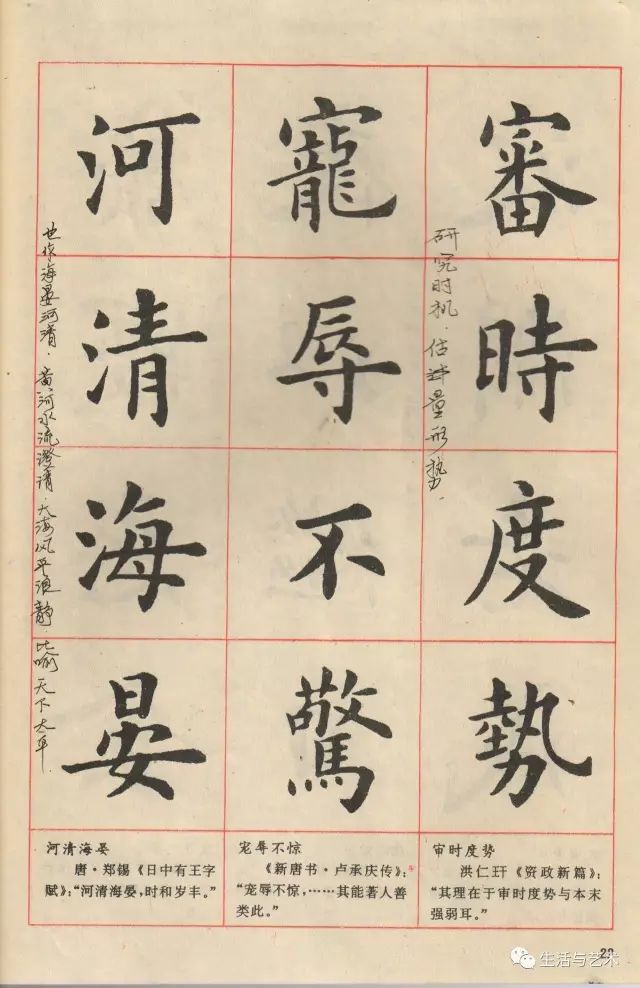 審時度勢
寵辱不驚
河清海晏
研究时机．估计量形势．
也作海晏河清．黄河水流澄清．大海风平浪静．比喻天下太平
审时度势
洪仁玕《资政新篇》：
“其理在于审时度势与本末
强弱耳。”
宠辱不惊
《新唐书·卢承庆传》：
“宠辱不惊，……其能著人善
类此。”
河清海晏
唐·郑锡《日中有王字
赋》：“河清海晏，时和岁丰。”
29
生活与艺术